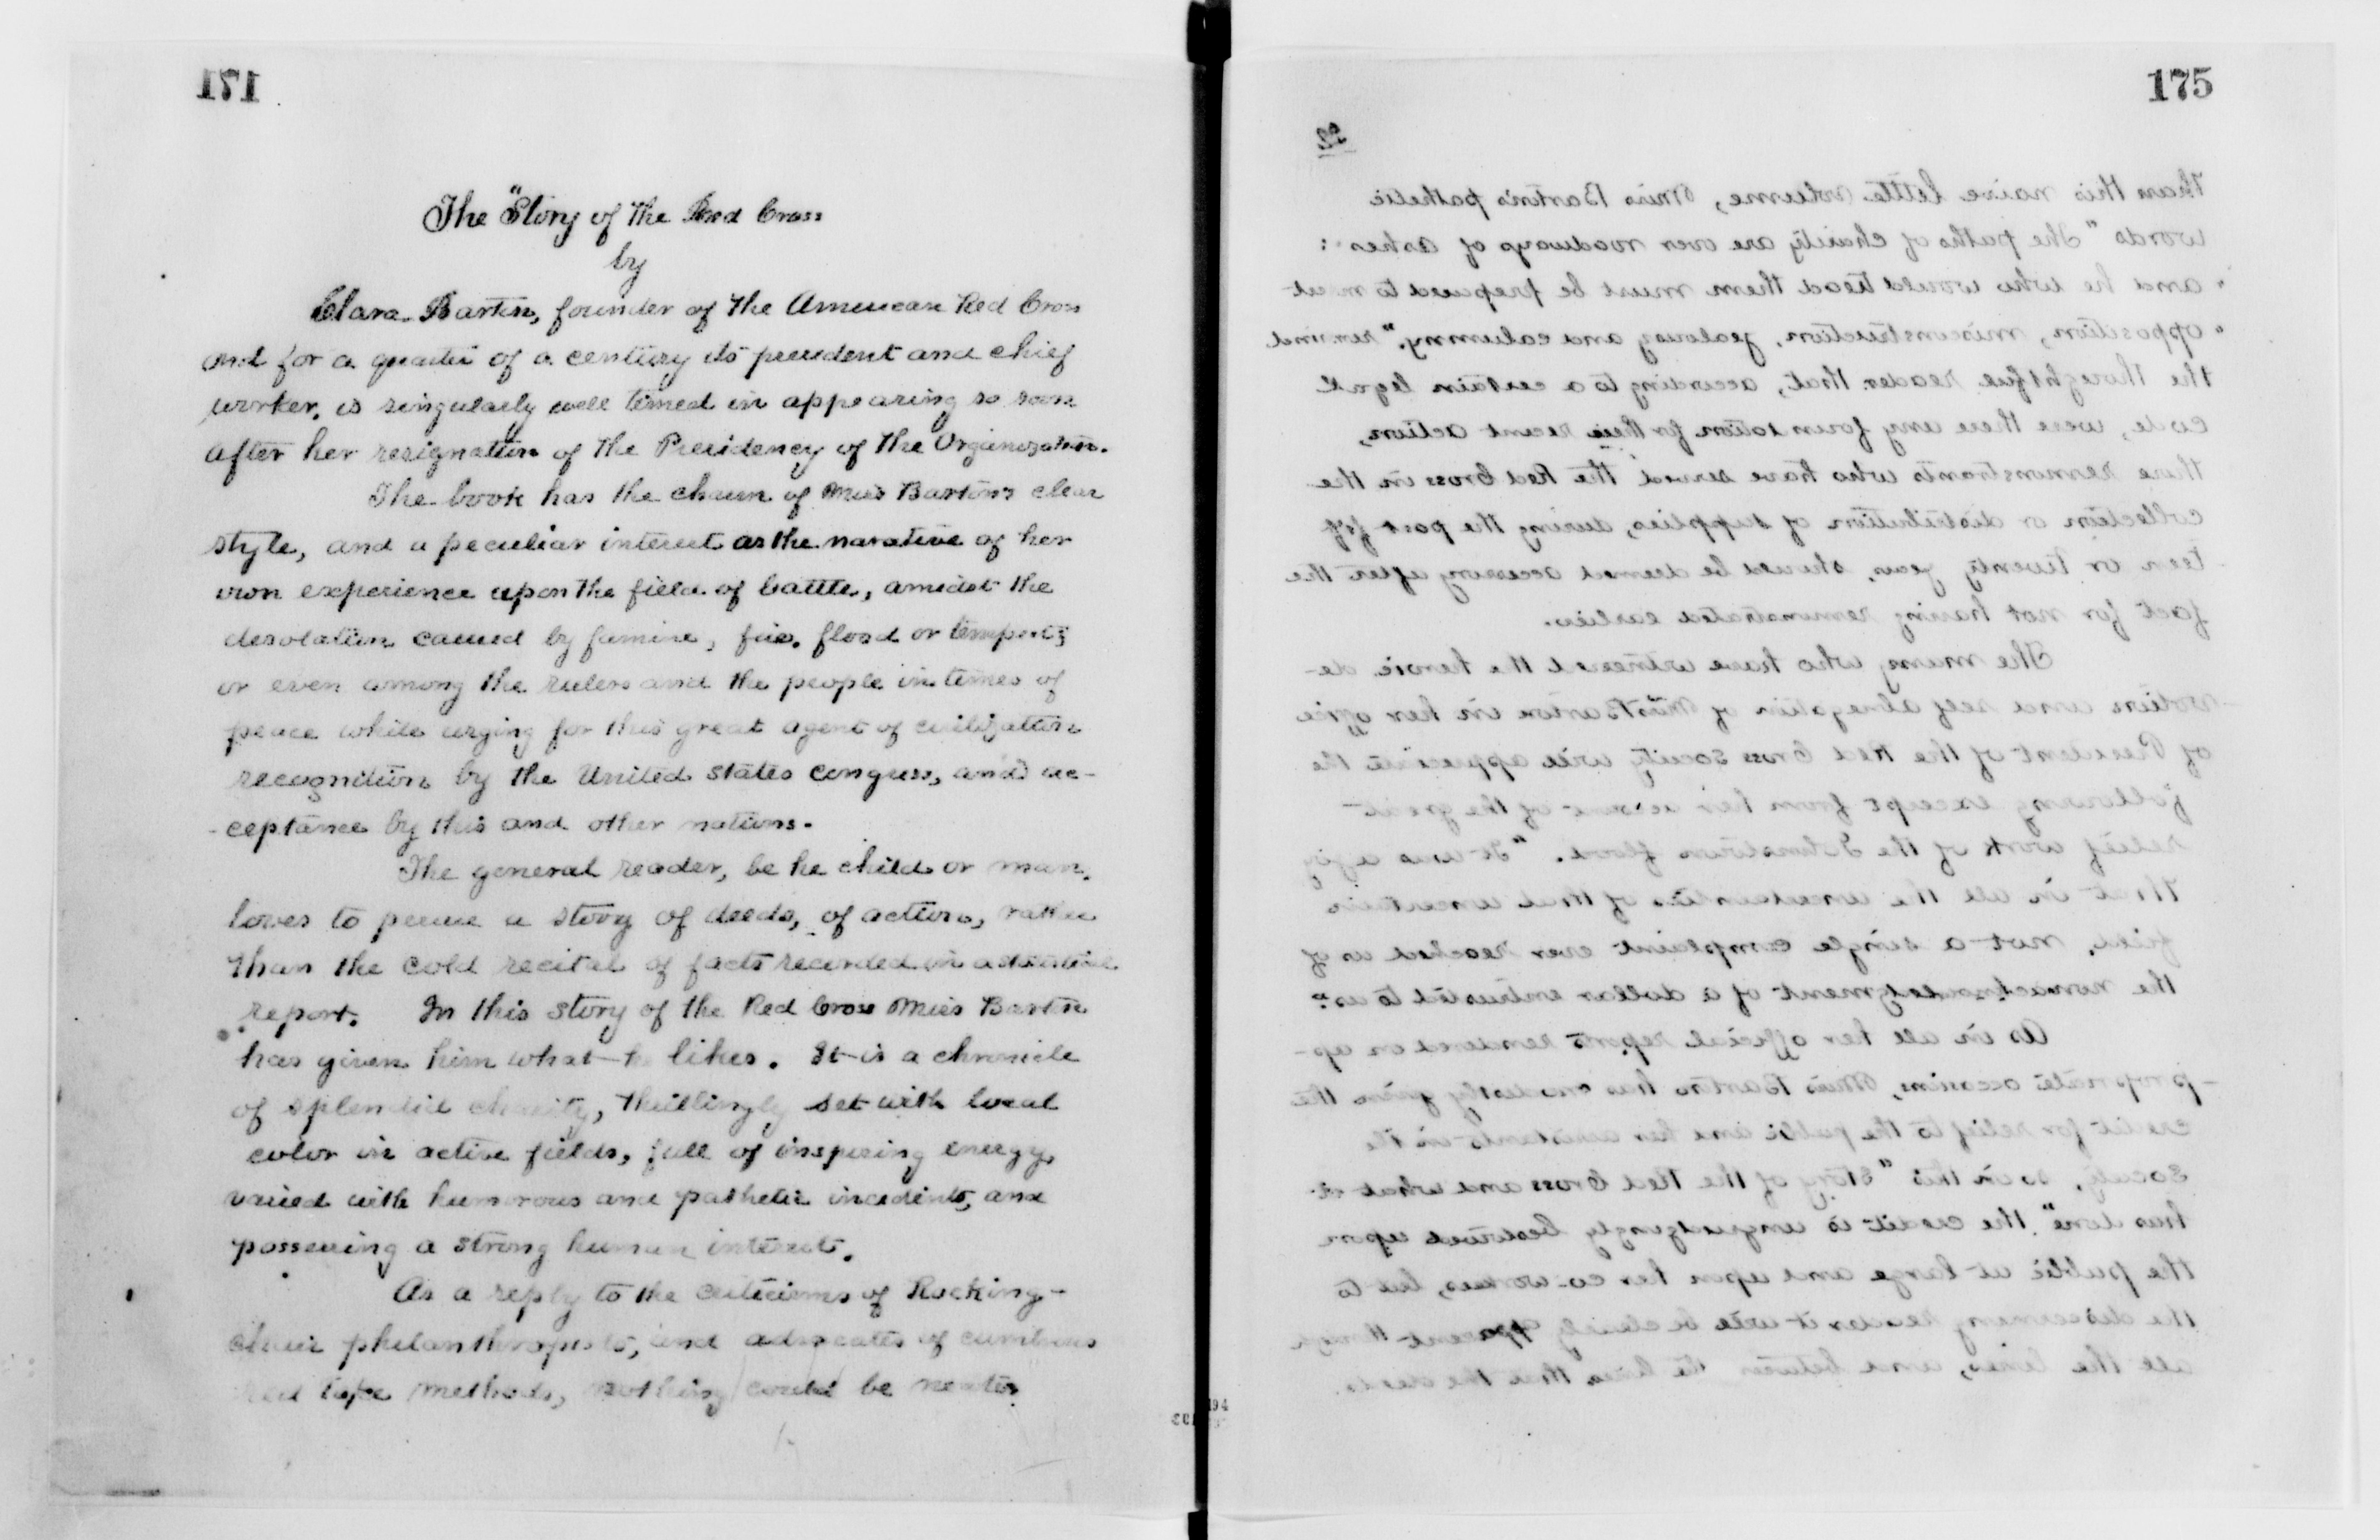 171
The "Story of the Red Cross
by
Clara Barton, founder of the American Red Cross
and for a quarter of a century its president and chief
worker, is singularly well timed in appearing so soon
after her resignation of the Presidency of the Organization.
The book has the charm of Miss Barton's clear
style, and a peculiar interest as the narative of her
own experience upon the field of battle, amidst the
desolation caused by famine, fire, flood or tempest;
or even among the rulers and the people in times of
peace while urging for this great agent of civilization
recognition by the United States Congress, and ac-
-ceptance by this and other nations.
The general reader, be he child or man,
loves to peruse a story of deeds, of action, rather
than the cold recital of facts recorded in a statistical
report. In this story of the Red Cross Miss Barton
has given him what he likes. It is a chronicle
of splendid charity, thrillingly set with local
color in active fields, full of inspiring energy,
varied with humorous and pathetic incidents, and
possessing a strong human interest.
As a reply to the criticisms of Rocking-
chair philanthropists, and advocates of cumbrous
red tape methods, nothing could be neater
175
22
than this naive little volume, Miss Barton's pathetic
words "The paths of charity are over roadways of ashes:
"and he who would tread them must be prepared to meet
"opposition, misconstruction, jealousy and calumny." remind
the thoughtful reader that, according to a certain legal
code, were there any foundation for their recent action,
these remonstrants who have served the Red Cross in the
collection or distribution of supplies, during the past fif
teen or twenty years, should be deemed accessory after the
fact for not having remonstrated earlier.
The many who have witnessed the heroic de-
-votion and self abnegation of Miss Barton in her office
of President of the Red Cross society will appreciate the
following except from her account of the great
relief work of the Johnstown flood. "It was a joy
that in all the uncertainties of that uncertain
field, not a single complaint ever reached us of
the nonacknowledgment of a dollar entrusted to us."
As in all her official reports rendered on ap-
-propriate occasions, Miss Barton has modestly given the
credit for relief to the public and her assistants in the
society, so in this "Story of the Red Cross and what it
has done". the credit is ungrudgingly bestowed upon
the public at large and upon her co-workers, but to
the discerning reader it will be clearly apparent through
all the lines, and between the lines that the deeds